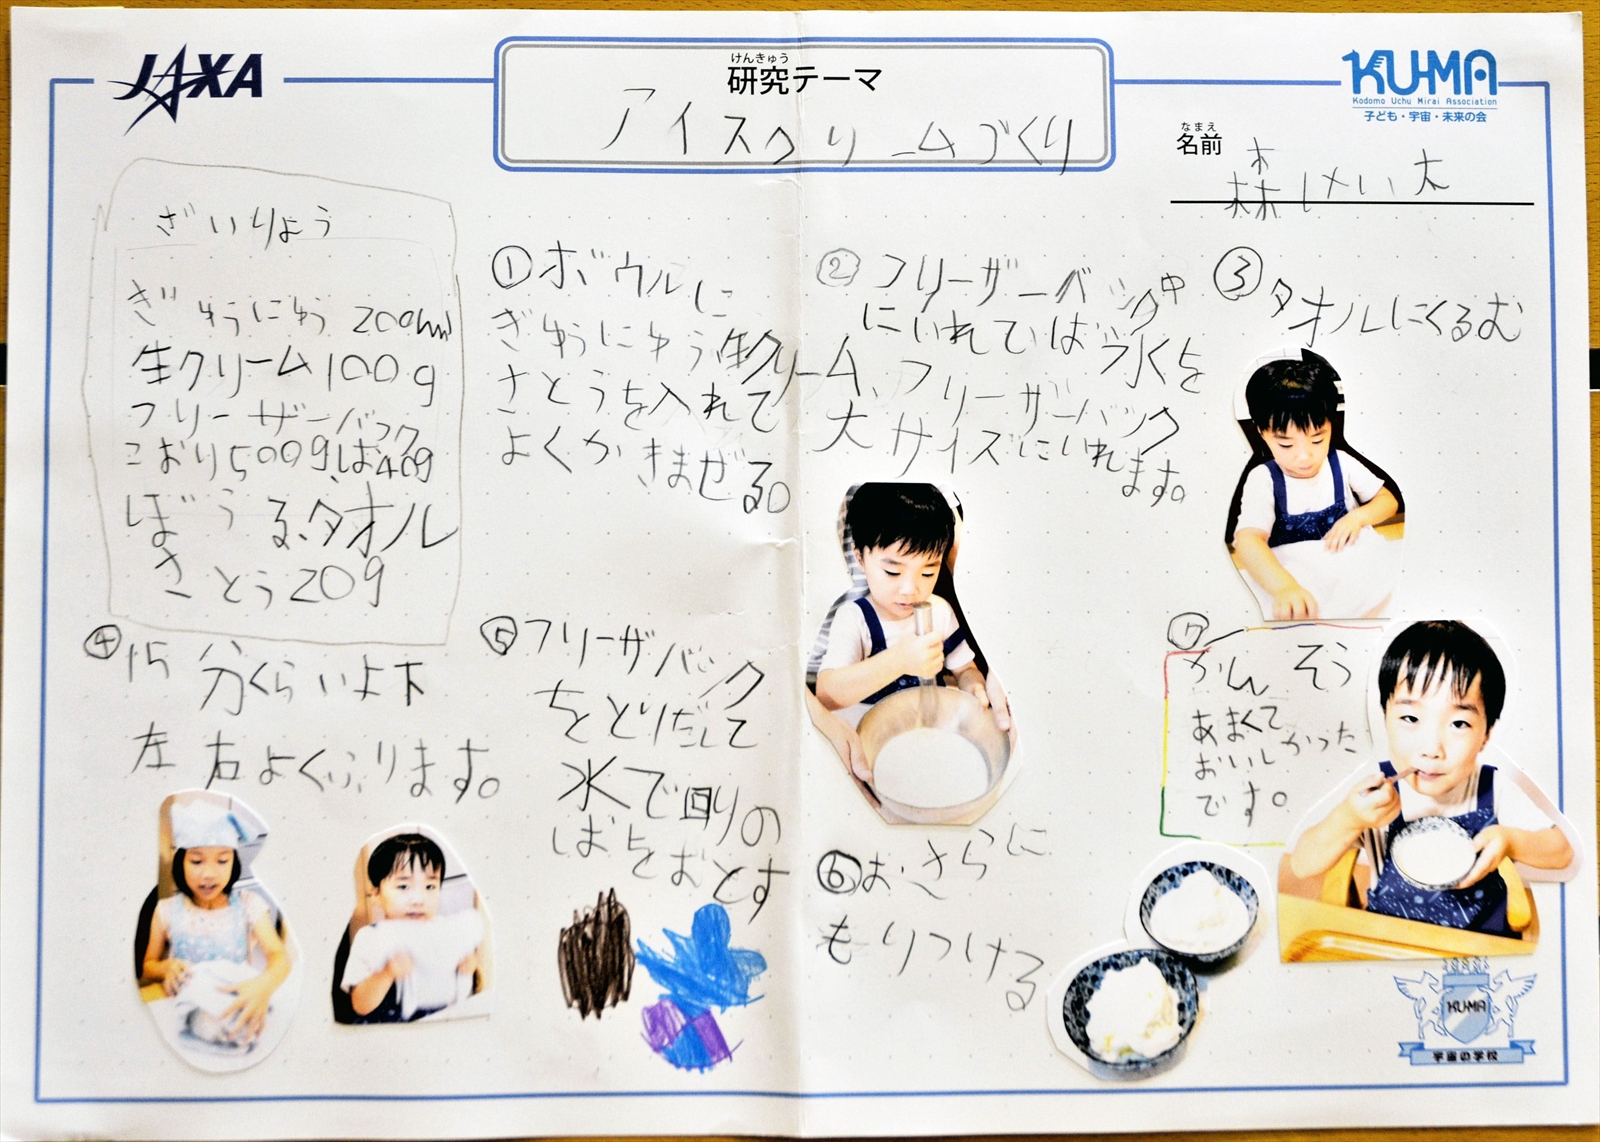 JAXA
けんきゅう
研究テーマ
アイスクリームづくり
KUMA
Kodomo Uchu Mirai Association
子ども・宇宙・未来の会
なまえ
名前
森けい太
ざいりょう
ぎゅうにゅう 200ml
生クリーム100g
フリーザーバック
こおり500gしお40g
ぼうる、タオル
さとう20g
①ボウルに
ぎゅうにゅう生クリーム、
さとうを入れて
よくかきまぜる。
②フリーザーバック中
にいれてしお氷を
フリーザーバック
大サイズにいれ
ます。
③タオルにくるむ
④15分くらい上下
左右よくふります。
⑤フリーザバック
をとりだして
水で回りの
しおをおとす
⑥おさらに
もりつける
⑦かんそう
あまくて
おいしかった
です。
KUMA
宇宙の学校